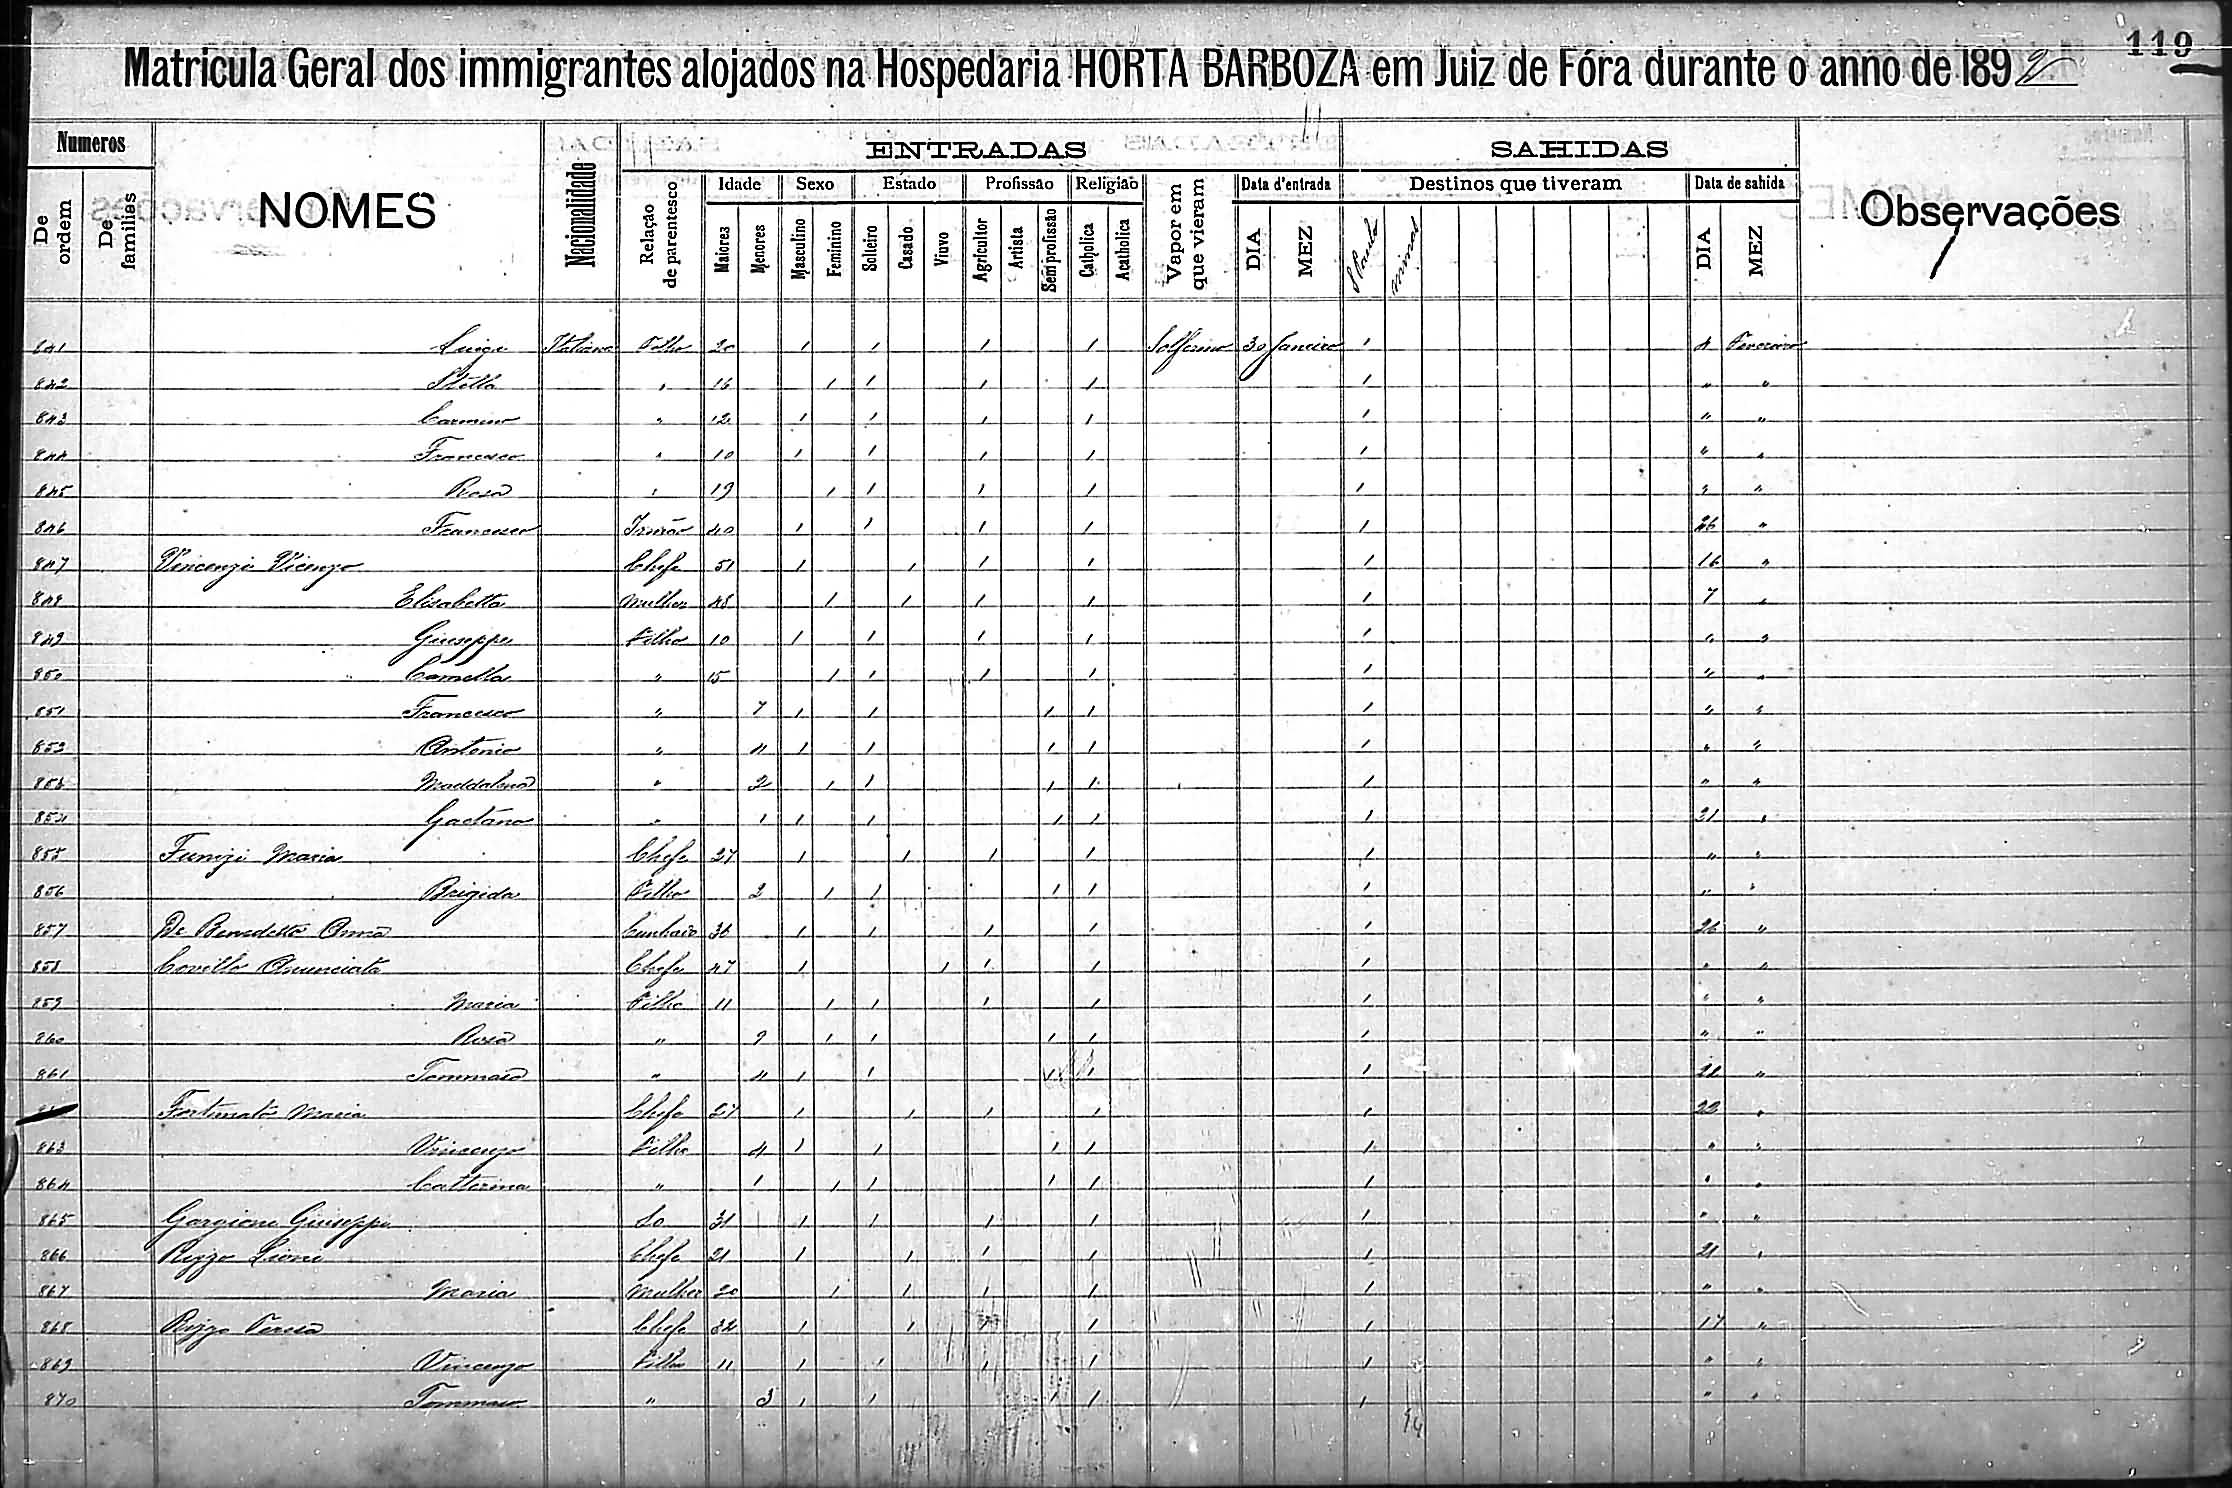 119
Matricula Geral dos immigrantes alojados na Hospedaria HORTA BARBOZA em Juiz de Fóra durante o anno de 1892
Numeros ENTRADAS SAHIDAS
De ordem De familias NOMES Nacionalidade Relação de parentesco Idade Sexo Estado Profissão Religião Vapor em que vieram Data d'entrada Destinos que tiveram Data de sahida Observações
Maiores Menores Masculino Feminino Solteiro Casado Viuvo Agricultor Artista Sem profissão Catholica Acatholica DIA MEZ S Paulo Minas DIA MEZ
841 Luigi Italiana Filho 20 1 1 1 1 Solferino 30 Janeiro 1 4 Fevereiro
842 Stella " 16 1 1 1 1 1 " "
843 Carmino " 12 1 1 1 1 1 " "
844 Francesco " 10 1 1 1 1 1 " "
845 Rosa " 19 1 1 1 1 1 " "
846 Francesco Irmão 40 1 1 1 1 1 26 "
847 Vincenzi Vicenzo Chefe 51 1 1 1 1 1 16 "
848 Elisabetta Mulher 48 1 1 1 1 1 7 "
849 Giuseppe Filho 10 1 1 1 1 1 " "
850 Camella " 15 1 1 1 1 1 " "
851 Francesco " 7 1 1 1 1 1 " "
852 Antonio " 4 1 1 1 1 1 " "
853 Maddalena " 2 1 1 1 1 1 " "
854 Gaetano " 1 1 1 1 1 1 21 "
855 Maria Chefe 27 1 1 1 1 1 " "
856 Brigida Filho 2 1 1 1 1 1 " "
857 De Benedetto Anna Cunhado 36 1 1 1 1 1 26 "
858 Covello Anunciata Chefe 47 1 1 1 1 1 " "
859 Maria Filho 11 1 1 1 1 1 " "
860 Rosa " 9 1 1 1 1 1 " "
861 Tommaso " 4 1 1 1 1 1 "
Fortunato Maria Chefe 27 1 1 1 1 1 22 "
863 Vincenzo Filho 4 1 1 1 1 1 " "
864 Catterina " 1 1 1 1 1 1 " "
865 Giuseppe So 31 1 1 1 1 1 " "
866 Rizzo Leoni Chefe 21 1 1 1 1 1 21 "
867 Maria Mulher 20 1 1 1 1 1 " "
868 Rizzo Teresa Chefe 32 1 1 1 1 1 17 "
869 Vincenzo Filho 11 1 1 1 1 1 " "
870 Tommaso " 3 1 1 1 1 1 " "